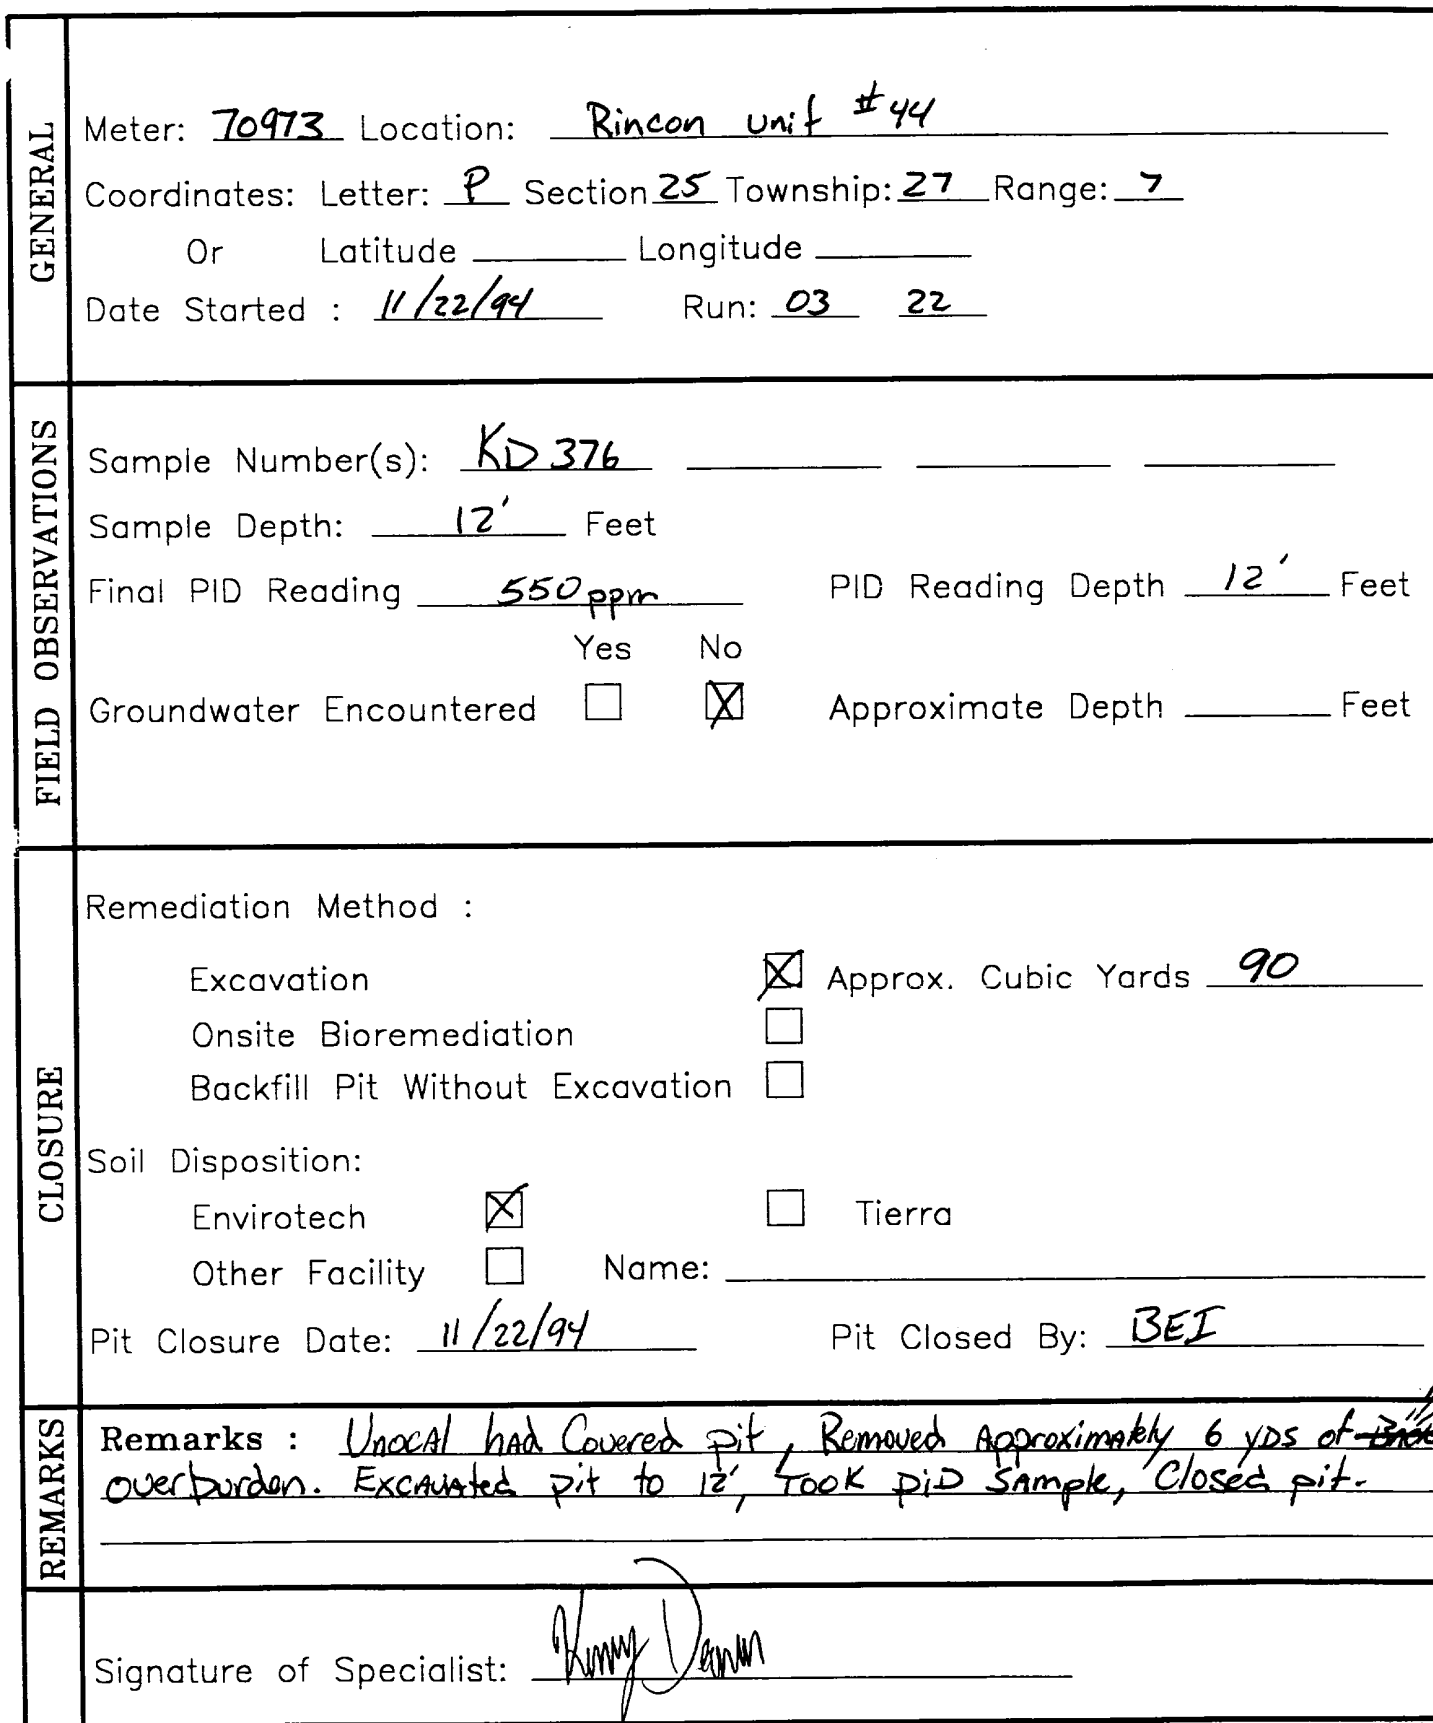 GENERAL
Meter: 70973 Location: Rincon Unit #44
Coordinates: Letter: P Section 25 Township: 27 Range: 7
Or Latitude Longitude
Date Started : 11/22/94 Run: 03 22
FIELD OBSERVATIONS
Sample Number(s): KD 376
Sample Depth: 12' Feet
Final PID Reading 550 ppm PID Reading Depth 12' Feet
Yes No
Groundwater Encountered Approximate Depth Feet
CLOSURE
Remediation Method :
Excavation Approx. Cubic Yards 90
Onsite Bioremediation
Backfill Pit Without Excavation
Soil Disposition:
Envirotech Tierra
Other Facility Name:
Pit Closure Date: 11/22/94 Pit Closed By: BEI
REMARKS
Remarks : Unocal had Covered pit, Removed Approximately 6 yds of
overburden. Excavated pit to 12', Took PiD Sample, Closed pit.
Signature of Specialist: Kenny